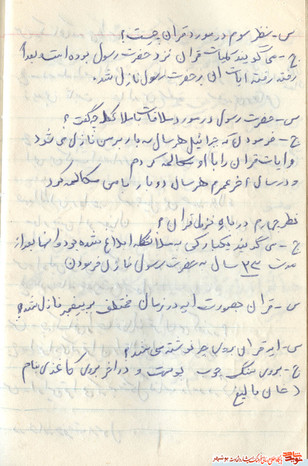 س - نظر سوم در مورد قرآن چیست؟
ج - می گویند کلیات قرآن نزد حضرت رسول بوده است بعداً
رفته رفته آیات آن بر حضرت رسول نازل شد.
س - حضرت رسول در مورد ملاقات با ملائکه چه گفت؟
ج - فرمودن که جبرائیل هر سال یه بار بر من نازل می شود
و آیات قرآن را با او مکالمه کردم
و در سال آخر عمرم هر سال دو بار با من مکالمه کرد
نظر چهارم درباره نزول قرآن؟
ج - می گویند یکبارگی به ملائکه ابلاغ شده بود و آنها بعد از
مدت ۲۳ سال به حضرت رسول نازل فرمودن
س - قرآن بصورت آیه در زمان مختلف بر پیغمبر نازل شد؟
س - آیه قرآن بروی چه نوشته می شد؟
ج - بروی سنگ چوب پوست و در آخر بروی کاغذی بنام